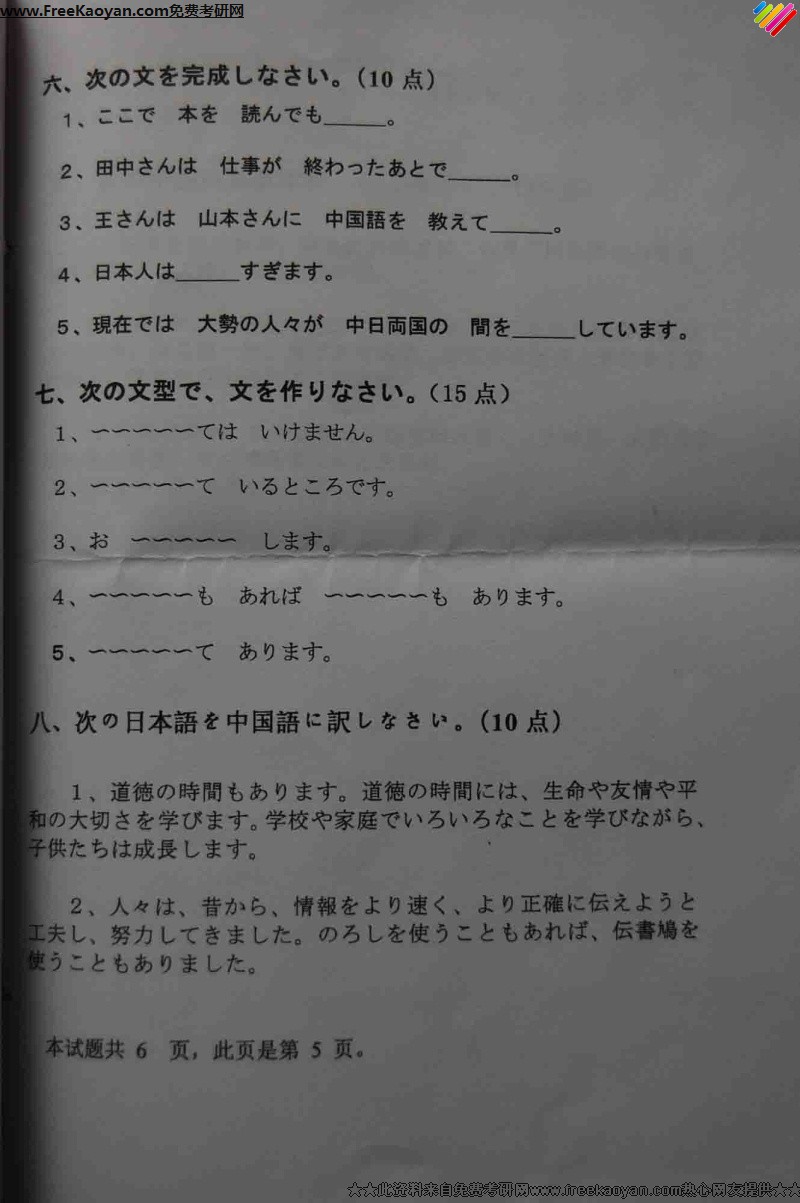 www.FreeKaoyan.com免费考研网
六、次の文を完成しなさい。（10 点）
1、ここで　本を　読んでも______。
2、田中さんは　仕事が　終わったあとで______。
3、王さんは　山本さんに　中国語を　教えて______。
4、日本人は______すぎます。
5、現在では　大勢の人々が　中日両国の　間を______しています。
七、次の文型で、文を作りなさい。（15 点）
1、～～～～～ては　いけません。
2、～～～～～て　いるところです。
3、お　～～～～～　します。
4、～～～～～も　あれば　～～～～～も　あります。
5、～～～～～て　あります。
八、次の日本語を中国語に訳しなさい。（10 点）
1、道徳の時間もあります。道徳の時間には、生命や友情や平
和の大切さを学びます。学校や家庭でいろいろなことを学びながら、
子供たちは成長します。
2、人々は、昔から、情報をより速く、より正確に伝えようと
工夫し、努力してきました。のろしを使うこともあれば、伝書鳩を
使うこともありました。
本试题共 6　页，此页是第 5 页。
★★此资料来自免费考研网www.freekaoyan.com热心网友提供★★